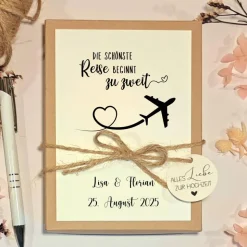 DIE SCHÖNSTE
Reise BEGINNT
zu zweit
ALLES Liebe
ZUR HOCHZEIT
Lisa & Florian
25. August 2025